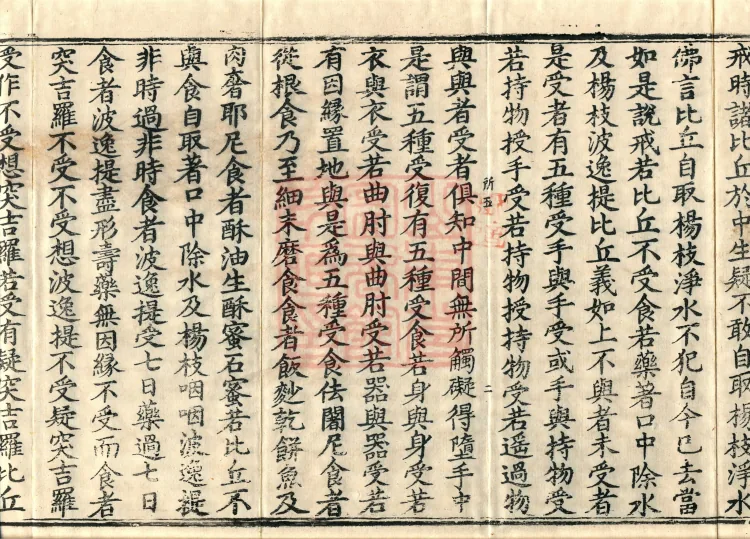 戒時諸比丘於中生疑不敢自取楊枝淨水
佛言比丘自取楊枝淨水不犯自今已去當
如是說戒若比丘不受食若藥著口中除水
及楊枝波逸提比丘義如上不與者未受者
是受者有五種受手與手受或手與持物受
若持物授手受若持物授持物受若遥過物
所五
二
與與者受者俱知中間無所觸礙得墮手中
是謂五種受復有五種受食若身與身受若
衣與衣受若曲肘與曲肘受若器與器受若
有因緣置地與是爲五種受食佉闍尼食者
從根食乃至細末磨食食者飯麨乾餅魚及
肉奢耶尼食者酥油生酥蜜石蜜若比丘不
與食自取著口中除水及楊枝咽咽波逸提
非時過非時食者波逸提受七日藥過七日
食者波逸提盡形壽藥無因緣不受而食者
突吉羅不受不受想波逸提不受疑突吉羅
受作不受想突吉羅若受有疑突吉羅比丘